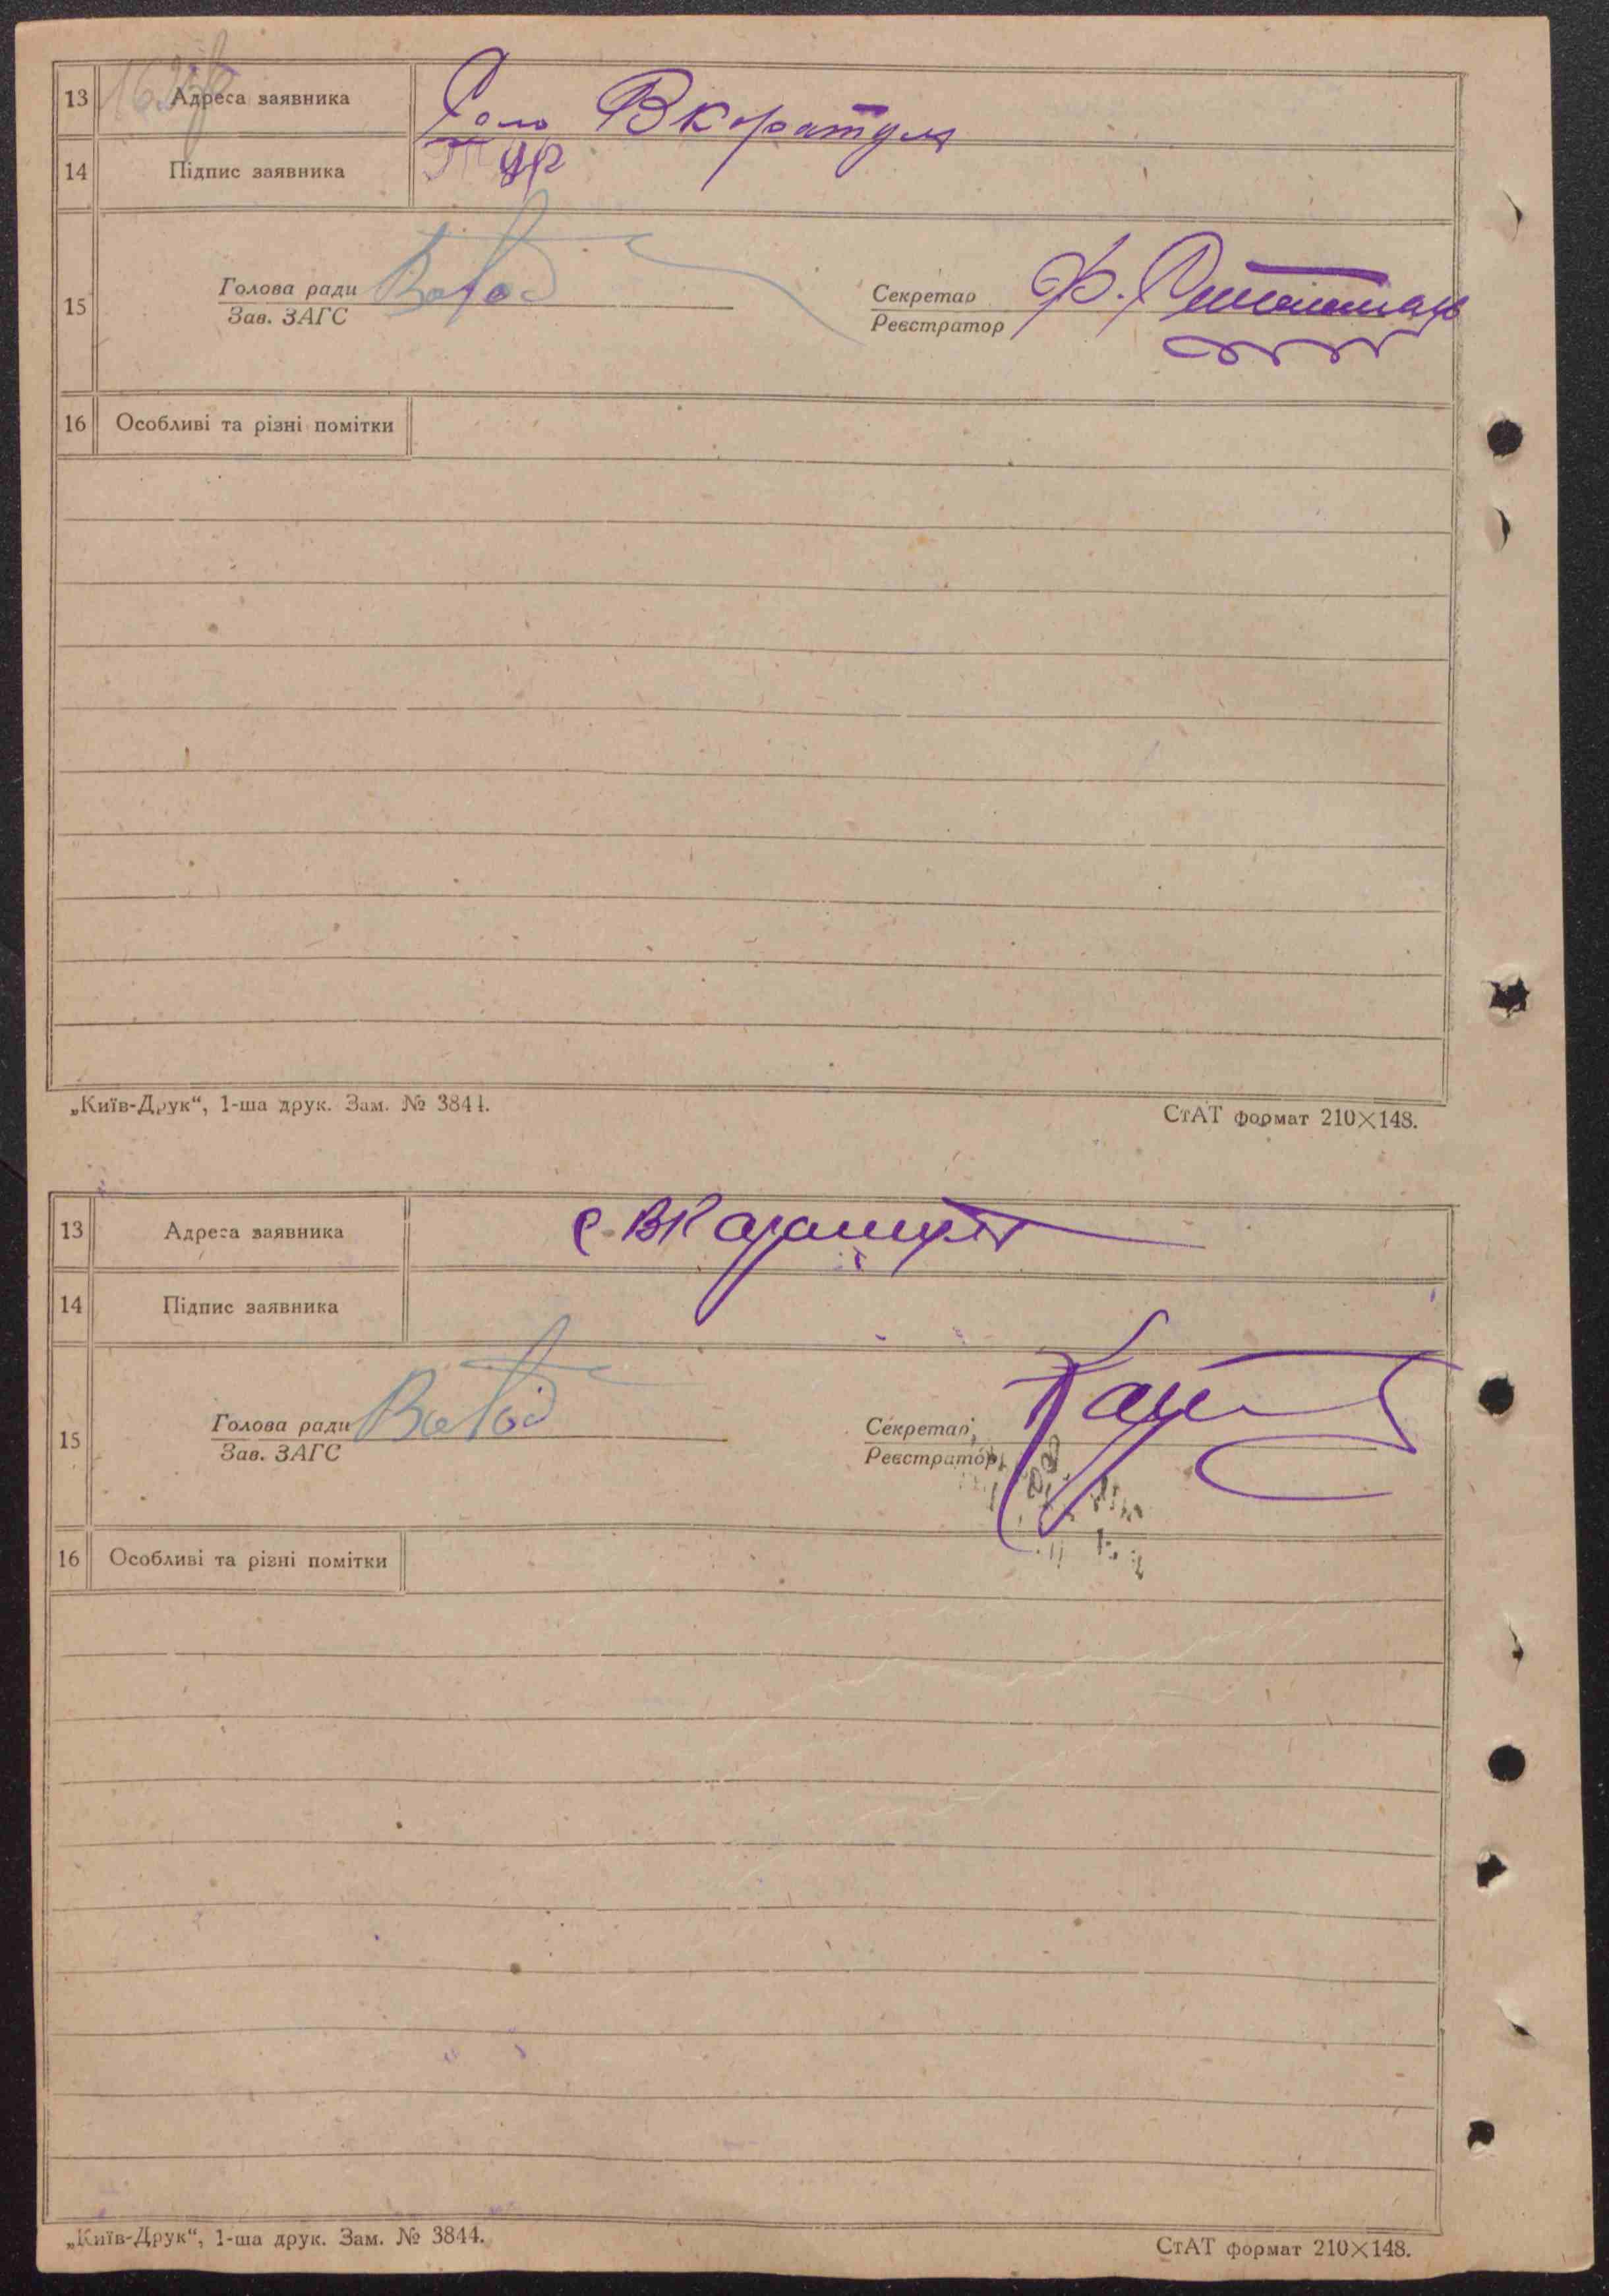 13 Адреса заявника Село Вкоратул
14 Підпис заявника
15 Голова ради Секретар
Зав. ЗАГС Реєстратор
16 Особливі та різні помітки
„Київ-Друк“, 1-ша друк. Зам. № 3844. СтАТ формат 210×148.
13 Адреса заявника с. ВКаратул
14 Підпис заявника
15 Голова ради Секретар
Зав. ЗАГС Реєстратор
16 Особливі та різні помітки
„Київ-Друк“, 1-ша друк. Зам. № 3844. СтАТ формат 210×148.